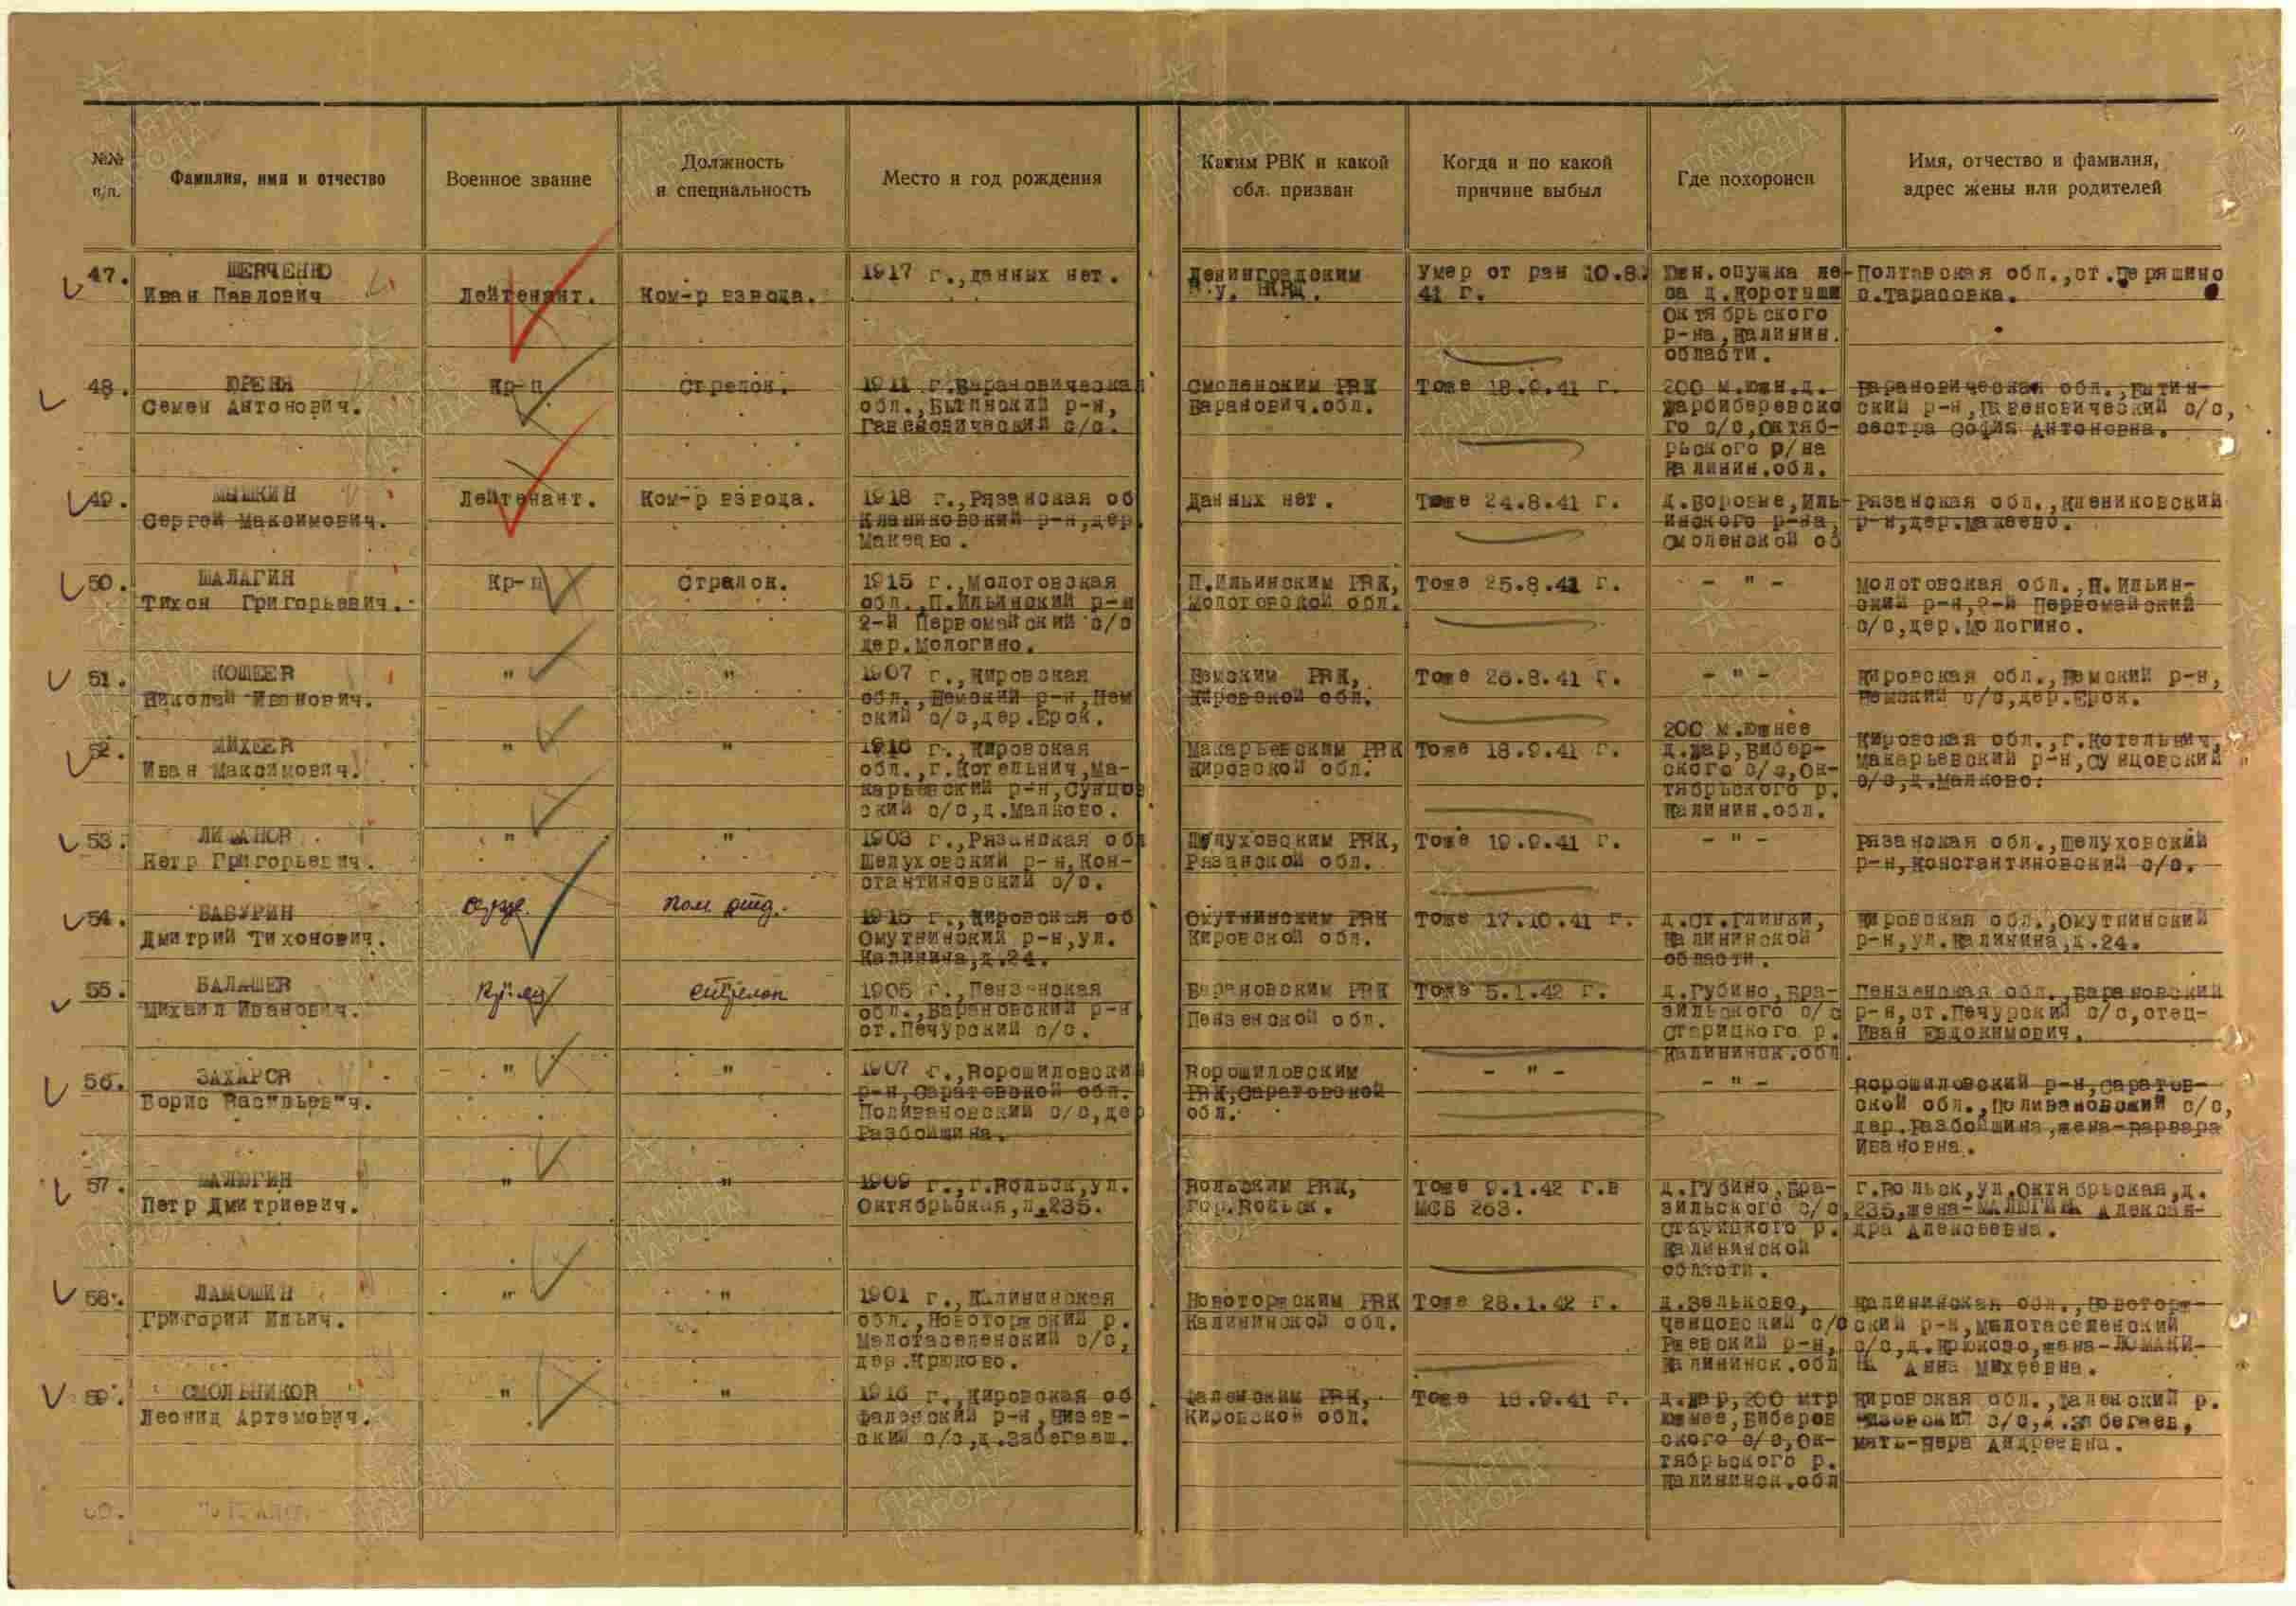 №№ п/п.
Фамилия, имя и отчество
Военное звание
Должность и специальность
Место и год рождения
Каким РВК и какой обл. призван
Когда и по какой причине выбыл
Где похоронен
Имя, отчество и фамилия, адрес жены или родителей
47.
ШЕВЧЕНКО
Иван Павлович
Лейтенант.
Ком-р взвода.
1917 г.,данных нет.
Ленинградским
В.у. НКВД.
Умер от ран 10.8.
41 г.
Южн.опушка ле-
са д.Коротыши
Октябрьского
р-на,Калинин.
области.
Полтавская обл.,ст.
с.Тарасовка.
48.
ЮРЕНЯ
Семен Антонович.
Кр-ц
Стрелок.
1911 г.Барановическая
обл.,Бытинский р-н,
Гавеновический с/с.
Смоленским РВК
Баранович.обл.
Тоже 18.9.41 г.
200 м.южн.д.
го с/с,Октяб-
рьского р/на
Калинин.обл.
Барановическая обл.,Бытин-
ский р-н,Гавеновический с/с,
сестра София Антоновна.
49.
МЫШКИН
Сергей Максимович.
Лейтенант.
Ком-р взвода.
1918 г.,Рязанская об
Клепиковский р-н,дер
Макеево.
Данных нет.
Тоже 24.8.41 г.
д.Боровые,Иль-
инского р-на,
Смоленской об
Рязанская обл.,Клепиковский
р-н,дер.Макеево.
50.
ШАЛАГИН
Тихон Григорьевич.
Кр-ц
Стрелок.
1915 г.,Молотовская
обл.,П.Ильинский р-н
2-й Первомайский с/с
дер.Мологино.
П.Ильинским РВК,
Молотовской обл.
Тоже 25.8.41 г.
- " -
Молотовская обл.,П.Ильин-
ский р-н,2-й Первомайский
с/с,дер.Мологино.
51.
КОЩЕЕВ
Николай Иванович.
"
"
1907 г.,Кировская
обл.,Немский р-н,Нем
ский с/с,дер.Ерок.
Немским РВК,
Кировской обл.
Тоже 26.8.41 г.
- " -
Кировская обл.,Немский р-н,
Немский с/с,дер.Ерок.
52.
МИХЕЕВ
Иван Максимович.
"
"
1916 г.,Кировская
обл.,г.Котельнич,Ма-
карьевский р-н,Сунцов
ский с/с,д.Малково.
Макарьевским РВК
Кировской обл.
Тоже 18.9.41 г.
200 м.южнее
д.Жар,Бибер-
ского с/с,Ок-
тябрьского р.
Калинин.обл.
Кировская обл.,г.Котельнич,
Макарьевский р-н,Сунцовский
с/с,д.Малково.
53.
Петр Григорьевич.
"
"
1903 г.,Рязанская обл
Шелуховский р-н,Кон-
стантиновский с/с.
Шелуховским РВК,
Рязанской обл.
Тоже 19.9.41 г.
- " -
Рязанская обл.,Шелуховский
р-н,Константиновский с/с.
54.
БАБУРИН
Дмитрий Тихонович.
1915 г.,Кировская об
Омутнинский р-н,ул.
Калинина,д.24.
Омутнинским РВК
Кировской обл.
Тоже 17.10.41 г.
д.Ст.Глинки,
Калининской
области.
Кировская обл.,Омутнинский
р-н,ул.Калинина,д.24.
55.
БАЛАШЕВ
Михаил Иванович.
Кр-ец
стрелок
1905 г.,Пензенская
обл.,Барановский р-н
ст.Печурский с/с.
Барановским РВК
Пензенской обл.
Тоже 5.1.42 г.
д.Губино,Бра-
зильского с/с
Старицкого р.
Калининск.обл.
Пензенская обл.,Барановский
р-н,ст.Печурский с/с,отец-
Иван Евдокимович.
56.
ЗАХАРОВ
Борис Васильевич.
"
"
1907 г.,Ворошиловский
р-н,Саратовской обл.
Поливановский с/с,дер
Разбойщина.
Ворошиловским
РВК,Саратовской
обл.
- " -
- " -
Ворошиловский р-н,Саратов-
ской обл.,Поливановский с/с,
дер.Разбойщина,жена-Варвара
Ивановна.
57.
МАЛЮГИН
Петр Дмитриевич.
"
"
1909 г.,г.Вольск,ул.
Октябрьская,д.235.
Вольским РВК,
Гор.Вольск.
Тоже 9.1.42 г.в
МСБ 263.
д.Губино,Бра-
зильского с/с,
Старицкого р.
Калининской
области.
г.Вольск,ул.Октябрьская,д.
235,жена-МАЛЮГИНА Алексан-
дра Алексеевна.
58.
Григорий Ильич.
"
"
1901 г.,Калининская
обл.,Новоторжский р.
Малотаселенский с/с,
дер.Крюково.
Новоторжским РВК
Калининской обл.
Тоже 28.1.42 г.
д.Зельково,
Ченцовский с/с
Ржевский р-н,
Калининск.обл
Калининская обл.,Новоторж-
ский р-н,Малотаселенский
с/с,д.Крюково,жена-
НА Анна Михеевна.
59.
СМОЛЬНИКОВ
Леонид Артемович.
"
"
1916 г.,Кировская об
Фаленский р-н,Низев-
ский с/с,д.Забегаевш.
Фаленским РВК,
Кировской обл.
Тоже 18.9.41 г.
д.Жар,200 мтр
южнее,Биберов
ского с/с,Ок-
тябрьского р.
Калининск.обл
Кировская обл.,Фаленский р.
Низевский с/с,д.Забегаев,
мать-Вера Андреевна.
60.